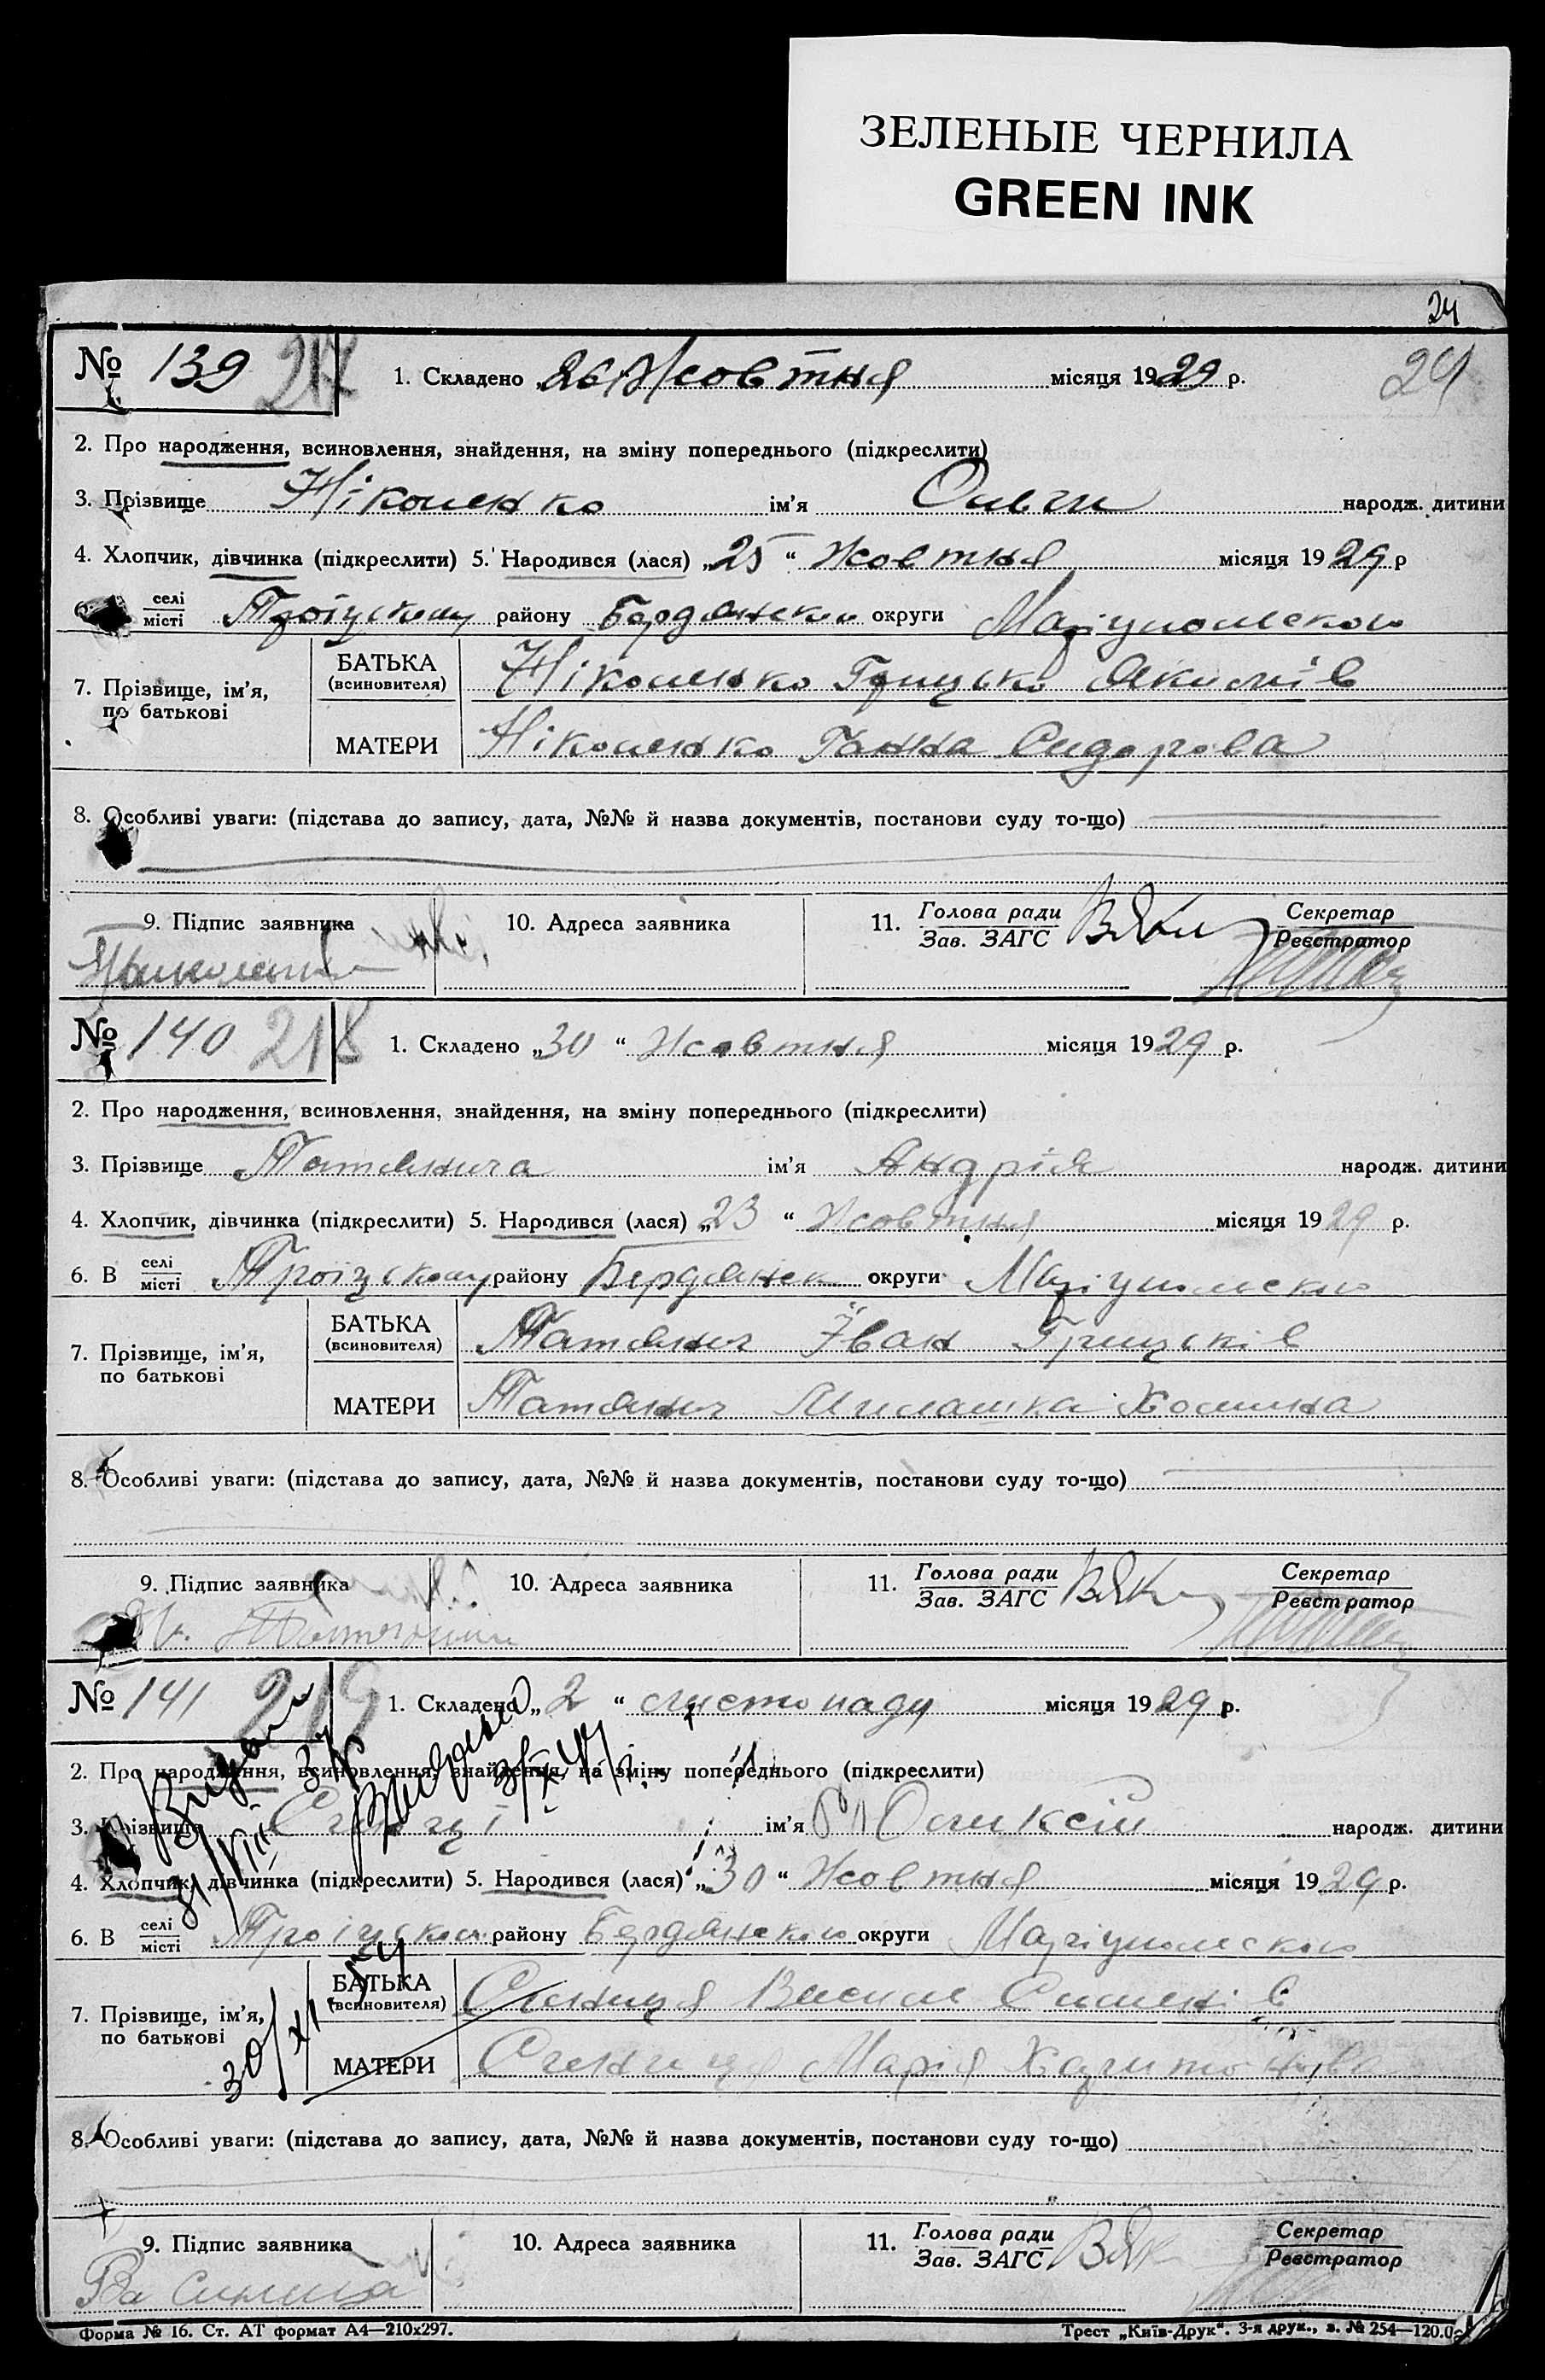 ЗЕЛЕНЫЕ ЧЕРНИЛА
GREEN INK
24
№ 139 217 1. Складено „26“ Жовтня місяця 1929 р. 24
2. Про народження, всиновлення, знайдення, на зміну попереднього (підкреслити)
3. Прізвище Ніколенко ім’я Ольги народж. дитини
4. Хлопчик, дівчинка (підкреслити) 5. Народився (лася) „25“ Жовтня місяця 1929 р
6. селі
місті Троїцькому району Бердянськ округи Маріупольськоі
7. Прізвище, ім’я, по батькові
БАТЬКА (всиновителя) Ніколенко Грицько Якимів
МАТЕРИ Ніколенко Ганна Сидорова
8. Особливі уваги: (підстава до запису, дата, №№ й назва документів, постанови суду то-що)
9. Підпис заявника 10. Адреса заявника 11. Голова ради
Зав. ЗАГС Секретар
Реєстратор
№ 140 218 1. Складено „30“ Жовтня місяця 1929 р.
2. Про народження, всиновлення, знайдення, на зміну попереднього (підкреслити)
3. Прізвище Татянича ім’я Андрія народж. дитини
4. Хлопчик, дівчинка (підкреслити) 5. Народився (лася) „23“ Жовтня місяця 1929 р.
6. В селі
місті Троїцькому району Бердянськ округи Маріупольсько
7. Прізвище, ім’я, по батькові
БАТЬКА (всиновителя) Татянич Іван Грицьків
МАТЕРИ Татянич Милашка Хомина
8. Особливі уваги: (підстава до запису, дата, №№ й назва документів, постанови суду то-що)
9. Підпис заявника 10. Адреса заявника 11. Голова ради
Зав. ЗАГС Секретар
Реєстратор
№ 141 219 1. Складено „2“ листопаду місяця 1929 р.
2. Про народження, всиновлення, знайдення, на зміну попереднього (підкреслити)
3. Прізвище ім’я Олексій народж. дитини
4. Хлопчик, дівчинка (підкреслити) 5. Народився (лася) „30“ Жовтня місяця 1929 р.
6. В селі
місті Троїцьком району Бердянсько округи Маріупольсько
7. Прізвище, ім’я, по батькові
БАТЬКА (всиновителя) Синиця Василь Семенів
МАТЕРИ Синиця Марія Харитонова
8. Особливі уваги: (підстава до запису, дата, №№ й назва документів, постанови суду то-що)
9. Підпис заявника 10. Адреса заявника 11. Голова ради
Зав. ЗАГС Секретар
Реєстратор
Форма № 16. Ст. АТ формат А4—210х297. Трест „Київ-Друк“. 3-я друк., з. № 254—120.0